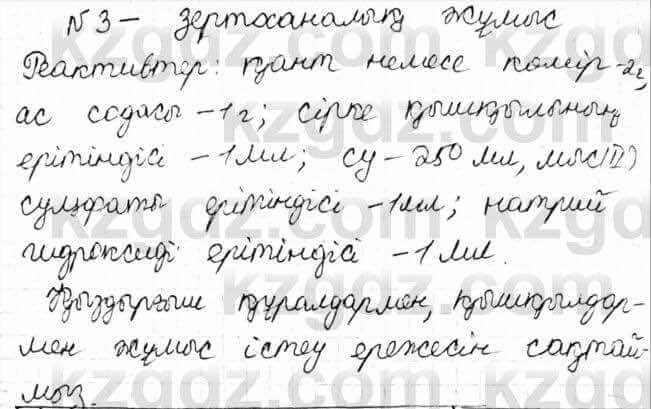 №3 – зертханалық жұмыс
Реактивтер: қант немесе көмір -2г,
ас содасы -1г; сірке қышқылының
ерітіндісі -1мл; су - 250 мл, мыс(II)
сульфаты ерітіндісі -1мл; натрий
гидроксиді ерітіндісі -1мл.
Қыздырғыш құралдармен, қышқылдар-
мен жұмыс істеу ережесін сақтай-
мыз.